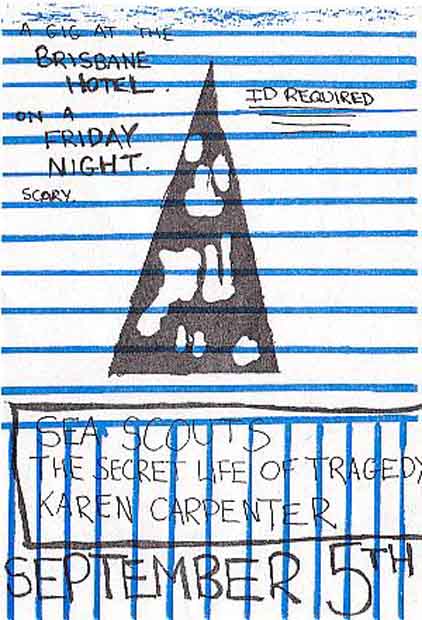 A GIG AT THE
BRISBANE
HOTEL.
ON A
FRIDAY
NIGHT.
SCARY.
ID REQUIRED
SEA SCOUTS
THE SECRET LIFE OF TRAGEDY
KAREN CARPENTER
SEPTEMBER 5TH